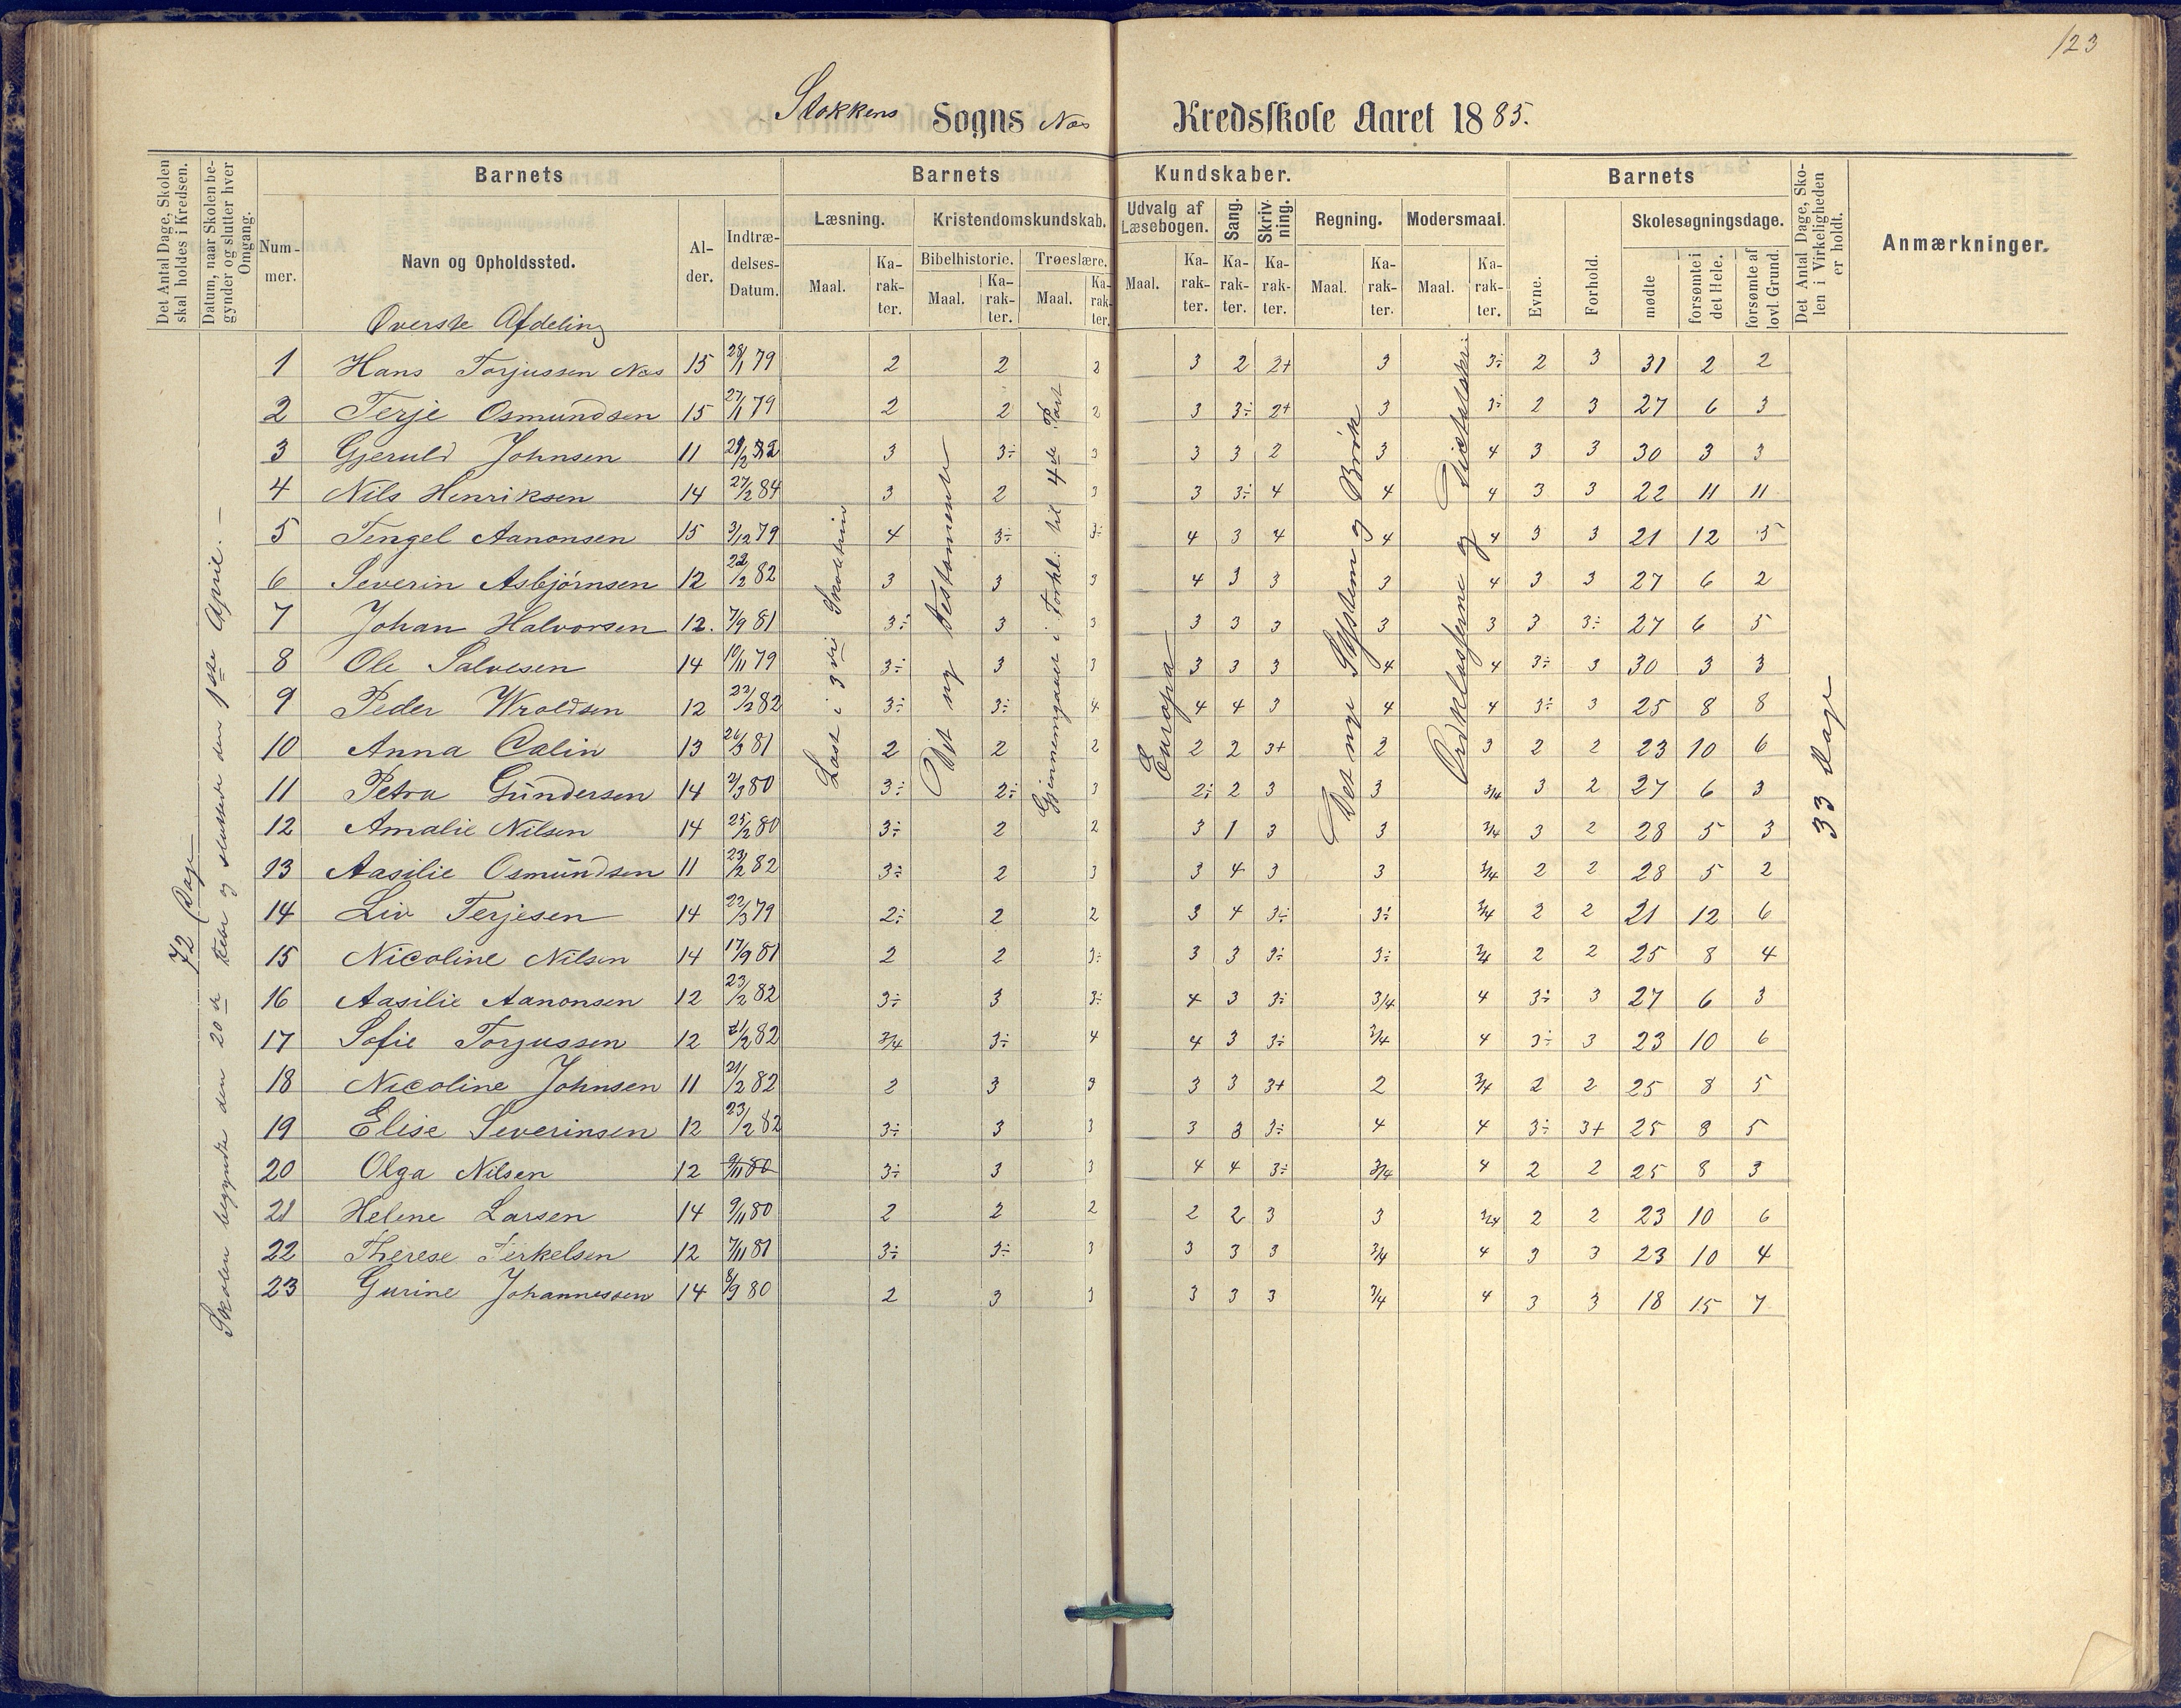 123
Stokkens Sogns Nes Kredsskole Aaret 1885.
Det Antal Dage, Skolen skal holdes i Kredsen.
Datum, naar Skolen begynder og slutter hver Omgang.
Barnets
Nummer.
Navn og Opholdssted.
Alder.
Indtrædelses-Datum.
Barnets Kundskaber.
Læsning.
Maal.
Karakter.
Kristendomskundskab.
Bibelhistorie.
Maal.
Karakter.
Troeslære.
Maal.
Karakter.
Udvalg af Læsebogen.
Maal.
Karakter.
Sang.
Karakter.
Skrivning.
Karakter.
Regning.
Maal.
Karakter.
Modersmaal.
Maal.
Karakter.
Barnets
Evne.
Forhold.
Skolesøgningsdage.
mødte
forsømte i det Hele.
forsømte af lovl. Grund.
Det Antal Dage, Skolen i Virkeligheden er holdt.
Anmærkninger.
Øverste Afdeling
72 Dage
Skolen begyndte den 20de Febr og sluttede den 1ste April. —
Læst i 3die Skoletrin
Det ny Testamente
Gjennemgaaet i Forkl: til 4de Part
Europa
Det nye System og Brøk
Ordklasserne og Diktatskr:
33 Dage
1 Hans Torjussen Nes 15 28/1 79 2 2 2 3 2 2+ 3 3÷ 2 3 31 2 2
2 Terje Osmundsen 15 27/1 79 2 2 2 3 3÷ 2+ 3 3÷ 2 3 27 6 3
3 Gjeruld Johnsen 11 3 3÷ 3 3 3 2 3 4 3 3 30 3 3
4 Nils Henriksen 14 27/2 84 3 2 3 3 3÷ 4 4 4 3 3 22 11 11
5 Tengel Aanonsen 15 3/12 79 4 3÷ 3÷ 4 3 4 4 4 3 3 21 12 5
6 Severin Asbjørnsen 12 22/2 82 3 3 3 4 3 3 3 4 3 3 27 6 2
7 Johan Halvorsen 12. 7/9 81 3÷ 3 3 3 3 3 3 3 3 3÷ 27 6 5
8 Ole Salvesen 14 10/11 79 3÷ 3 3 3 3 3 4 4 3÷ 3 30 3 3
9 Peder Wroldsen 12 22/2 82 3÷ 3÷ 4 4 4 3 4 4 3÷ 3 25 8 8
10 Anna Calin 13 26/3 81 2 2 2 2 2 3+ 2 3 2 2 23 10 6
11 Petra Gundersen 14 2/3 80 3÷ 2÷ 3 2÷ 2 3 3 3/4 3 2 27 6 3
12 Amalie Nilsen 14 25/2 80 3÷ 2 2 3 1 3 3 3/4 3 2 28 5 3
13 Aasilie Osmundsen 11 23/2 82 3÷ 2 3 3 4 3 3 3/4 2 2 28 5 2
14 Liv Terjesen 14 22/3 79 2÷ 2 2 3 4 3÷ 3÷ 3/4 2 2 21 12 6
15 Nicoline Nilsen 14 17/9 81 2 2 3÷ 3 3 3÷ 3÷ 3/4 2 2 25 8 4
16 Aasilie Aanonsen 12 23/2 82 3÷ 3 3÷ 4 3 3÷ 3/4 4 3÷ 3 27 6 3
17 Sofie Torjussen 12 21/2 82 3/4 3÷ 4 4 3 3÷ 3/4 4 3÷ 3 23 10 6
18 Nicoline Johnsen 11 21/2 82 2 3 3 3 3 3+ 2 3/4 2 2 25 8 5
19 Elise Severinsen 12 23/2 82 3÷ 3 3 3 3 3÷ 4 4 3÷ 3+ 25 8 5
20 Olga Nilsen 12 9/11 80 3÷ 3 3 4 4 3÷ 3/4 4 2 2 25 8 3
21 Helene Larsen 14 9/11 80 2 2 2 2 2 3 3 3/4 2 2 23 10 6
22 Therese Terkelsen 12 7/11 81 3÷ 3÷ 3 3 3 3 3/4 4 3 3 23 10 4
23 Gurine Johannessen 14 8/9 80 2 3 3 3 3 3 3/4 4 3 3 18 15 7